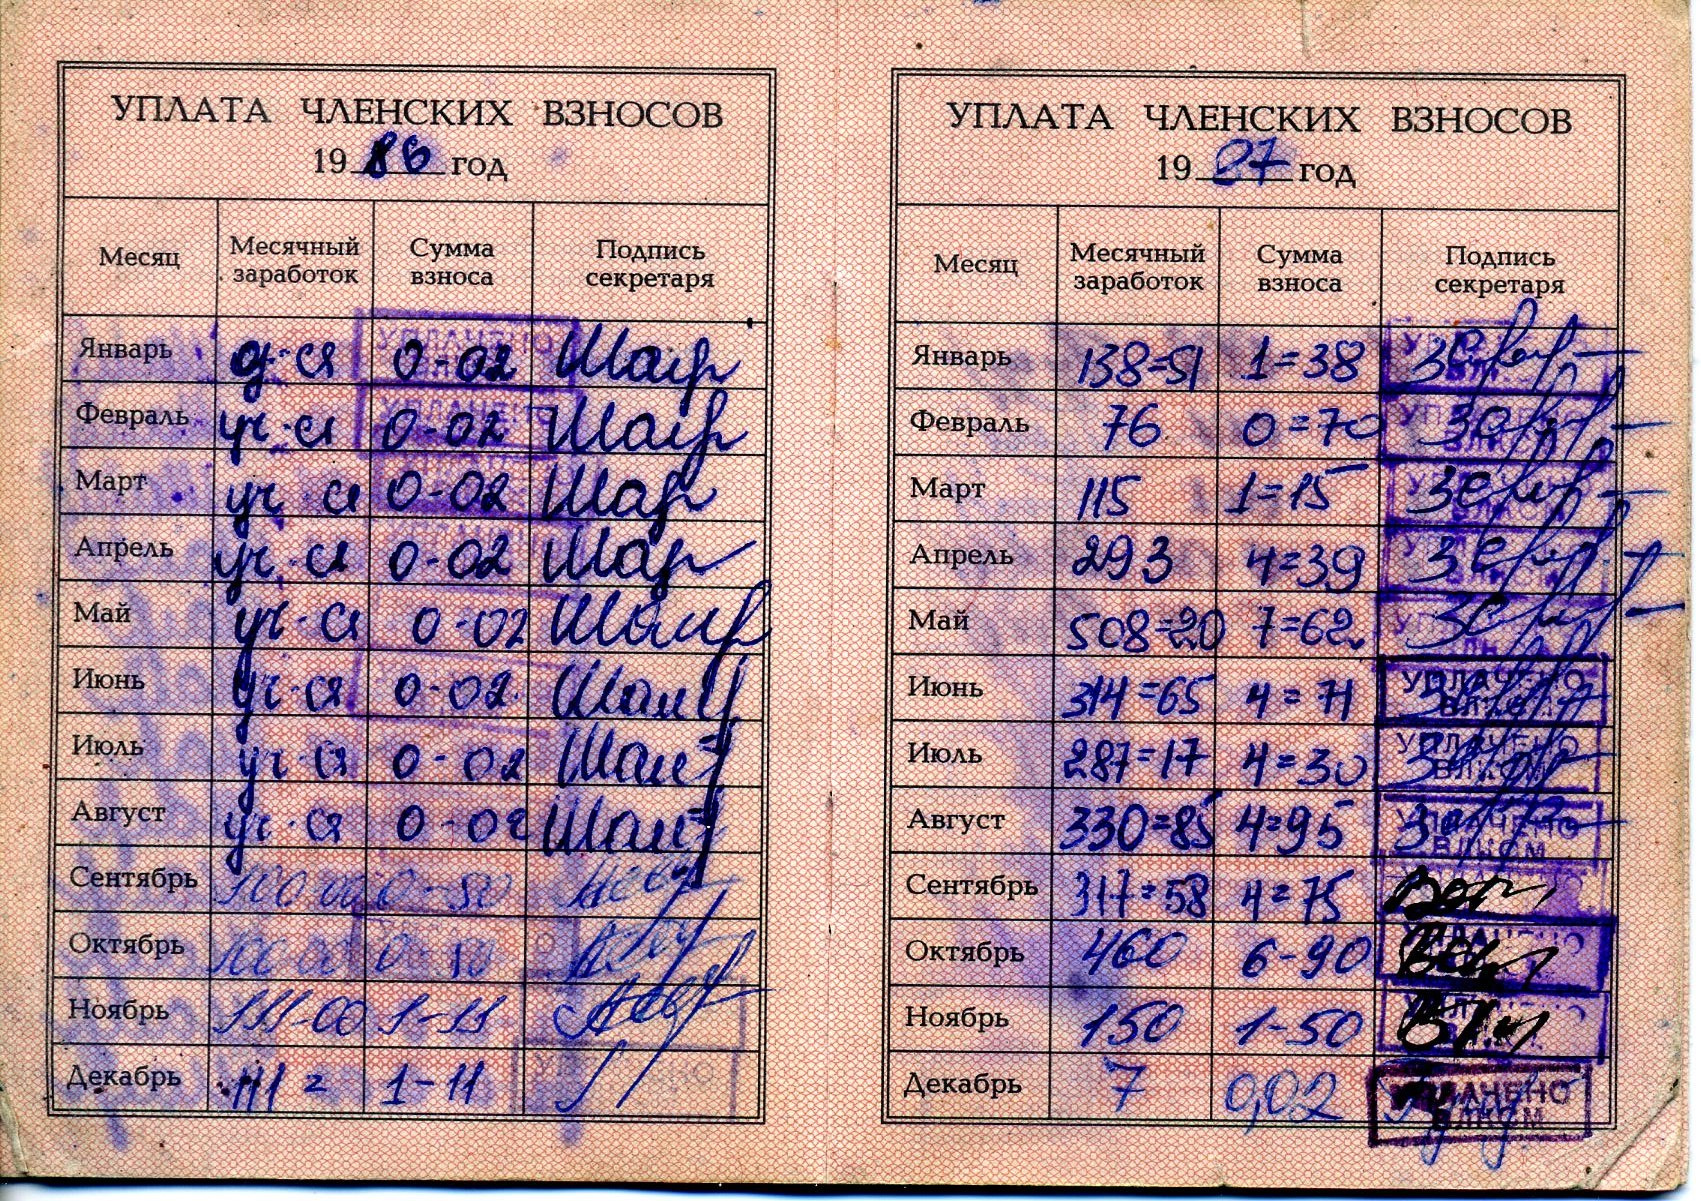 УПЛАТА ЧЛЕНСКИХ ВЗНОСОВ
1986 год
Месяц Месячный заработок Сумма взноса Подпись секретаря
Январь 0-02
Февраль уч-ся 0-02
Март уч-ся 0-02
Апрель уч-ся 0-02
Май уч-ся 0-02
Июнь уч-ся 0-02
Июль уч-ся 0-02
Август уч-ся 0-02
Сентябрь 100-00 0-50
Октябрь 100-00 0-50
Ноябрь 111-00 1-11
Декабрь 111= 1-11
УПЛАТА ЧЛЕНСКИХ ВЗНОСОВ
1987 год
Месяц Месячный заработок Сумма взноса Подпись секретаря
Январь 138=51 1=38
Февраль 76 0=70 УПЛАЧЕНО
Март 115 1=15
Апрель 293 4=39
Май 508=20 7=62
Июнь 314=65 4=71 УПЛАЧЕНО ВЛКСМ
Июль 287=17 4=30 УПЛАЧЕНО ВЛКСМ
Август 330=85 4=95 УПЛАЧЕНО ВЛКСМ
Сентябрь 317=58 4=75
Октябрь 460 6-90 УПЛАЧЕНО
Ноябрь 150 1-50
Декабрь 7 0,02 УПЛАЧЕНО ВЛКСМ